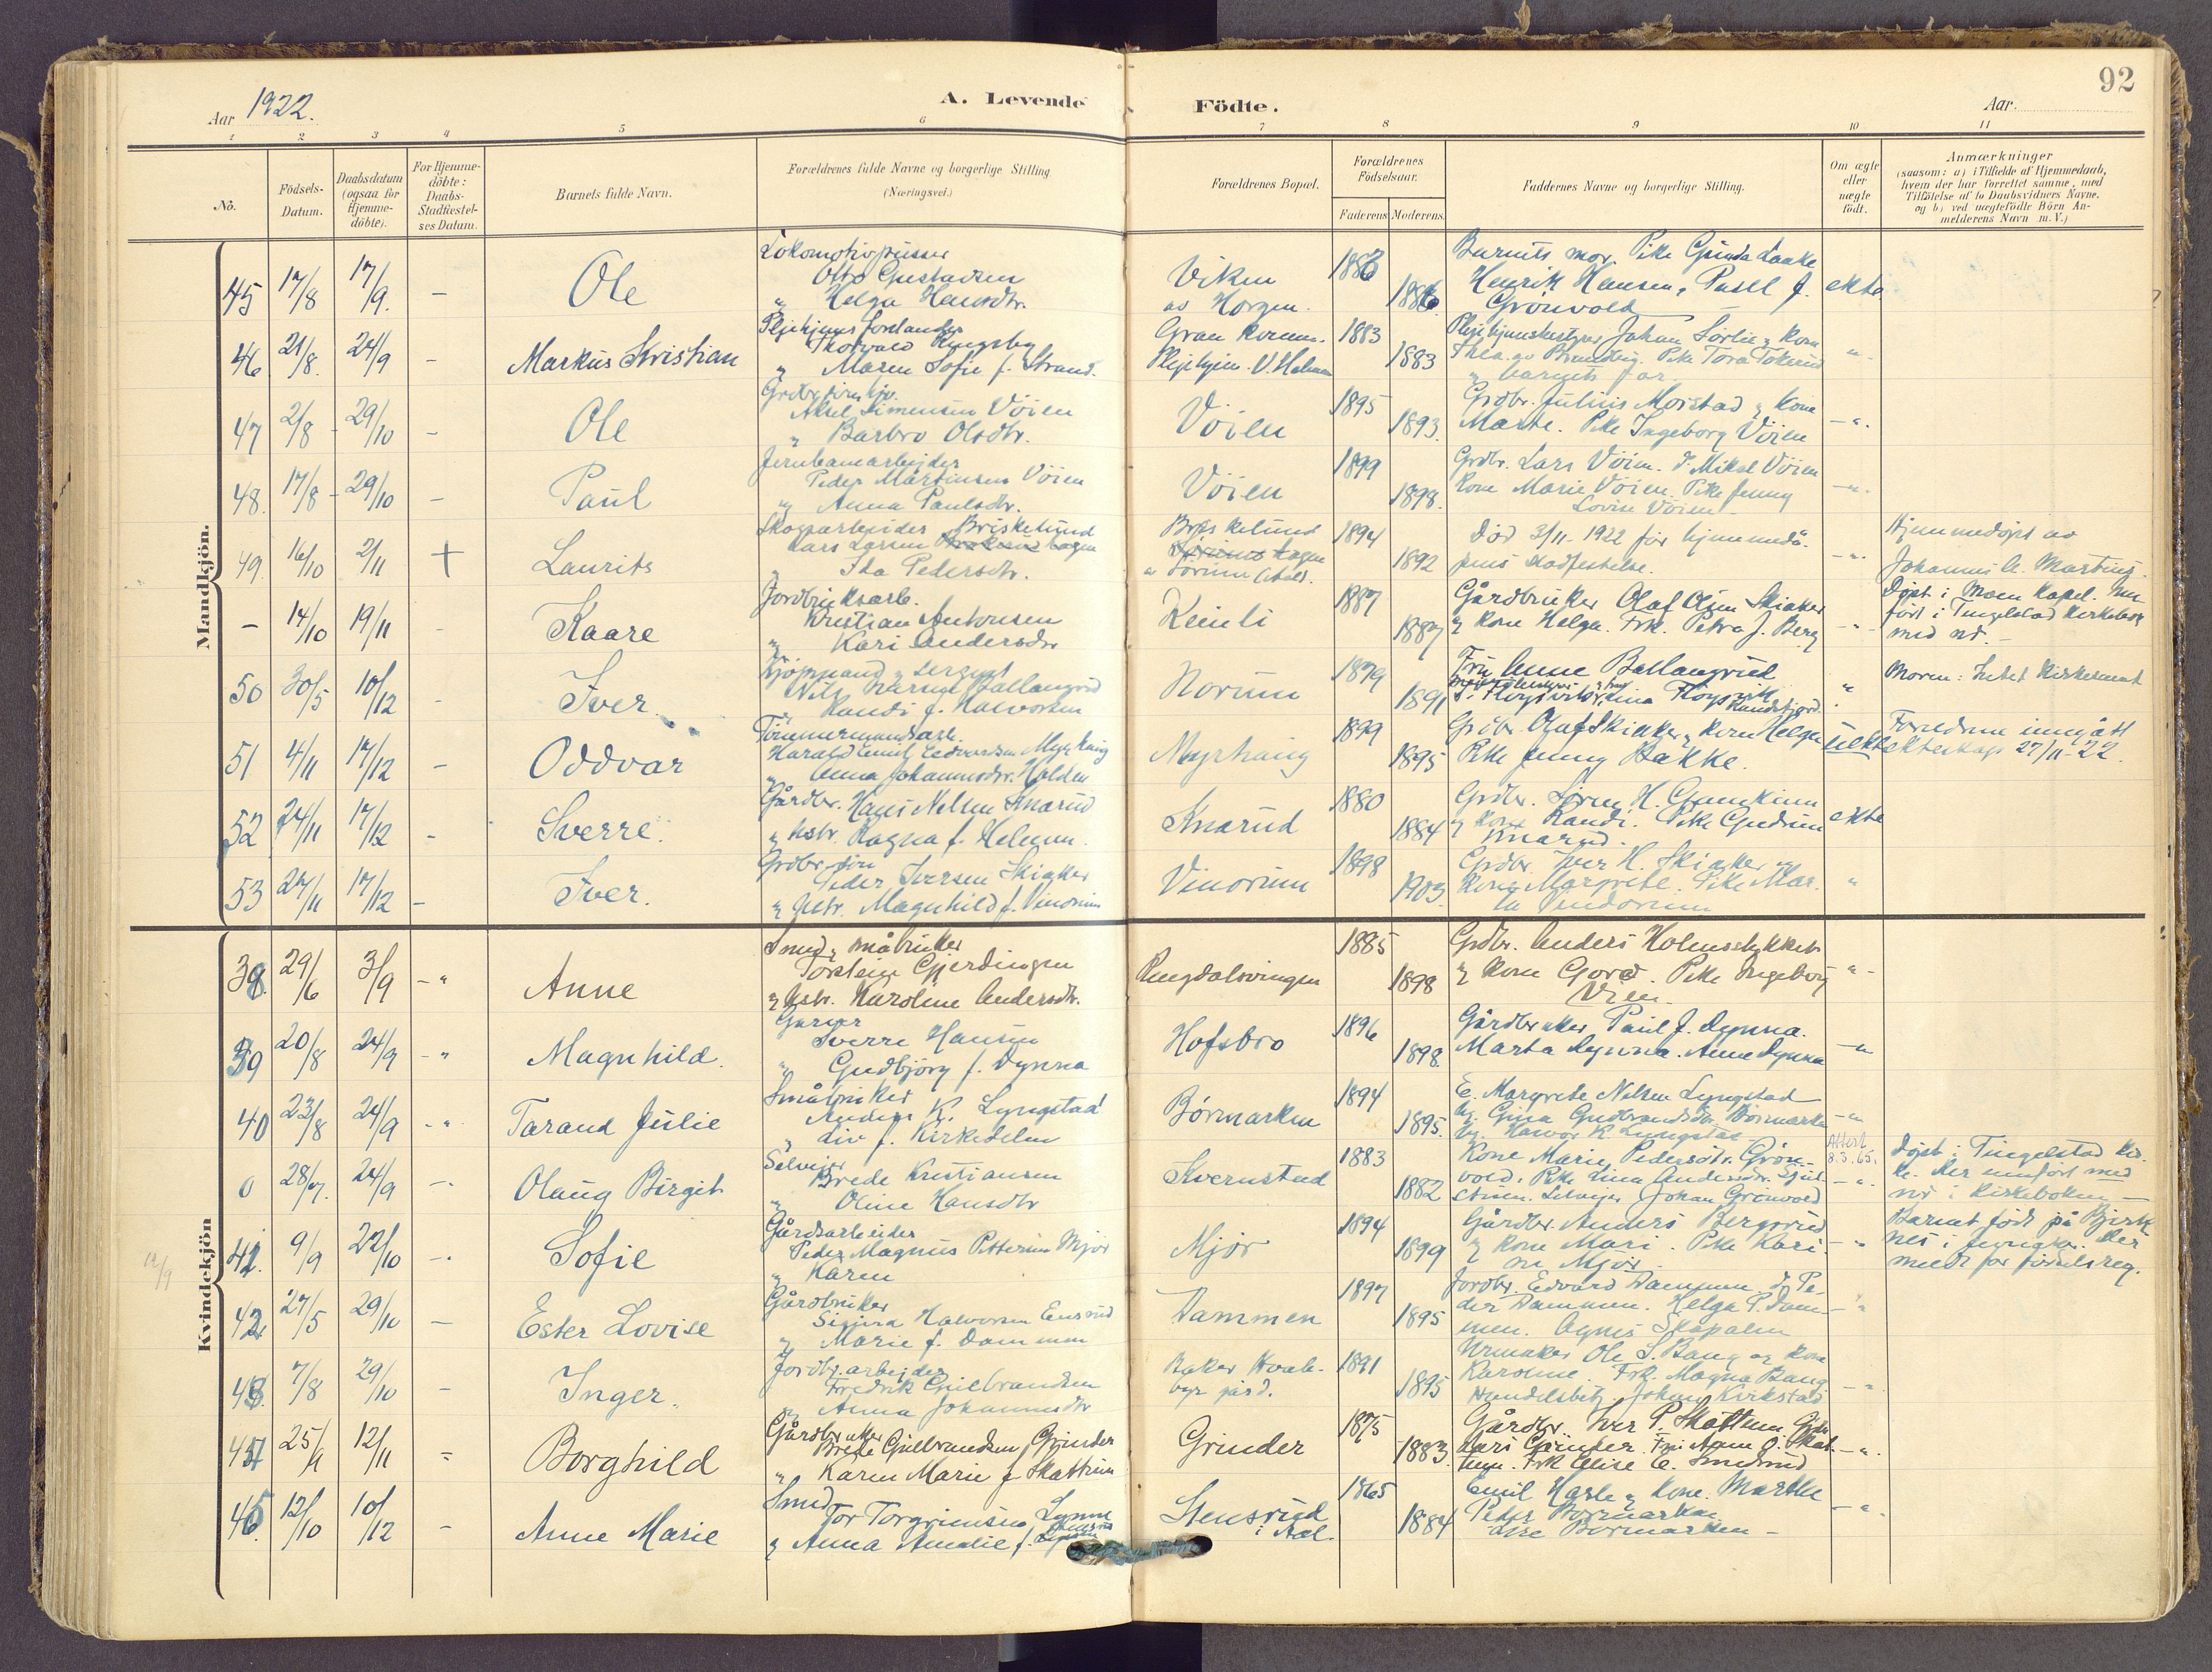 92
Aar 1922.
A. Levende Födte.
Aar
1 2 3 4 5 6 7 8 9 10 11
No.
Födsels-
Datum.
Daabsdatum
(ogsaa for
Hjemme-
döbte).
For Hjemme-
döbte:
Daabs-
Stadfæstel-
ses Datum.
Barnets fulde Navn.
Forældrenes fulde Navne og borgerlige Stilling
(Næringsvei.)
Forældrenes Bopæl.
Forældrenes
Födselsaar.
Faderens Moderens
Faddernes Navne og borgerlige Stilling.
Om ægte
eller
uægte
født.
Anmærkninger
(saasom: a) i Tilfælde af Hjemmedaab,
hvem der har forrettet samme, med
Tilföielse af to Daabsvidners Navne.
og b) ved uægtefödte Börn An-
melderens Navn m. V.)
Mandkjön.
45 17/8 17/9. - Ole
Lokomotivpusser
Otto Gustavsen
" Helga Hansdtr.
Viken
av Horgen.
1886
1886
Barnets mor. Pike Gunda Laake
Henrik Hansen, Pasll J.
Grönvold
ekte
46 21/8. 24/9 - Markus Kristian
Pleiehjems forstander
Thorvald Ringsby
" Maren Sofie f. Strand.
Gran komm.
Pleiehjem. V. Halmen
1883
1883
Johan Sörlie & kone
Thea. Pike Tora Tokerud
& barnets far
"
47 2/8 - 29/10 - Ole
Aksel Simensen Vöien
" Barbro Olsdtr.
Vöien
1895
1893.
Grdbr. Julius Morstad & kone
Marte. Pike Ingeborg Vöien
- " -
48. 17/8 - 29/10 - Paul
Jernbanearbeider
Peder Martinsen Vöien
" Anna Paulsdtr.
Vöien
1899
1898.
Grdbr. Lars Vöien. do Mikal Vöien
Kone Marie Vöien. Pike Jenny
Lovise Vöien
- " -
49. 16/10 2/11 + Laurits
Skogsarbeider Brískelund
Lars Larsen hagen
" Ida Pedersdtr.
Briskelund
hagen
1894
1892
Död 3/11-1922 för hjemmedå-
pens stadfestelse.
- " -
Hjemmedöpt av
Johannes A. Martins.
- 14/10 19/11 - Kaare
Jordbruksarb.
Kristian Antonsen
" Kari Andersdtr
Keinli
1887
1887
Gårdbruker Olaf Olsen Skiaker
& kone Helga. Frk. Petra J. Berg
- " -
Döpt i Moen kapel. Inn-
ført i Tingelstad kirkebok
med nr. -
50 30/5 10/12 - Iver
Kjöpmand & sersjant
Nils Ballangrud
Randi f. Halvorsen
Norum
1879
1891
Fru Anne Ballangrud
Randsfjord.
"
Moren: Utel. Kirkesenet
51 4/11 17/12 - Oddvar
Tömmermandsarb.
Harald Emil Edvardsen Myrhaug
" Anna Johannesdtr. Halden
Myrhaug
1899
1895
Grdbr. Olaf Skiaker & kone Helga
Pike Jenny Bakke.
uekte
Foreldrene inngått
ekteskap 27/11-22.
52 24/11 17/12 - Sverre.
Gårdbr. Hans Nilsen Knarud
& hstr. Ragna f. Helmen.
Knarud
1880
1884
Grdbr. Sören H. Gamkinn
& kone Randi. Pike Gudrun
Knarud.
ekte
53 27/11 17/12 - Iver.
Grdbr. sön
Peder Iversen Skiaker
& hstr. Magnhild f. Vinorum
Vinorum
1898
1903.
Grdbr. Iver H. Skiaker og
kone Margrete. Pike Mar-
ta Vindorum
"
Kvindekjön
38. 29/6 3/9 - " Anne
Smed & småbruker
Torstein Gjerdingen
& hstr. Karoline Andersdtr.
Ringdalsvingen
1885
1898
Grdbr. Anders Holmsstykket
& kone Goro. Pike Ingeborg
Vien.
"
39 20/8 24/9 - " Magnhild.
Garver
Sverre Hansen
" Gudbjörg f. Dynna
Hofsbro
1896
1898.
Gårdbruker Paul J. Dynna.
Marta Dynna. Anne Dynna
- "
40 23/8 24/9 - " Tarand Julie
Småbruker
Anders K. Lyngstad
" Liv f. Kirkedelen
Börmarken
1894
1895.
E. Margrete Nilsen Lyngstad
Ug. Gina Gudbrandsdtr Börmarken
Ug. Halvor K. Lyngstad
- "
0 28/7. 24/9 - Olaug Birgit
Selveier
Brede Kristiansen
" Oline Hansdtr
Kvernstad
1883
1882
Kone Marie Pedersdtr. Grön-
vold. Pike Lina Andersdtr.
Selveier Johan Grönvold
Attest
8.3.65.
- " -
Döpt i Tingelstad kir-
ke. Der innfört med
nr i kirkeboken -
41. 9/9 22/10 - Sofie
Gårdsarbeider
Peder Magnus Pettersen Mjör
" Karen
Mjör
1894
1899
Gårdbr. Anders Bergsrud
& kone Mari. Pike Kari-
ne Mjör.
- "
Barnet född på Bjerk
nes i Jevnaker. Der
meldt for födselsreg.
12/9
42 27/5 29/10 - Ester Lovise
Gårdbruker
Sigurd Halvorsen Ensrud
" Marie f. Dammen
Dammen
1897
1895
Jordbr. Edvard Dammen, do Pe-
der Dammen. Helga P. Dam-
men. Agnes Skapalen
- "
43. 7/8 29/10 - Inger.
Jordbr. arbeider
Fredrik Gulbrandsen
" Anna Johannesdtr
Raker Hvale-
bye gård.
1891
1895
Urmaker Ole S. Bang og kone
Karoline. Frk. Magna Bang
Handelsbetj. Johan Kvikstad
- "
44 25/9 12/11 - Borghild
Gårdbruker
Brede Gulbrandsen Grinder
" Karen Marie f. Skattum
Grinder
1875
1883.
Gårdbr. Iver P. Skattum.
Lars Grinder. Fru Anne O. Skat-
tum. Frk Elise E. Smedsrud
- "
45. 12/10 10/12 - Anne Marie
Smed
Tor Torgrimsen Lynne
& Anna Amalie f.
Stensrud
i Aal.
1865
1884
Emil Hasle & kone Marthe
Peder Börmarken
Åse Börmarken -
- "